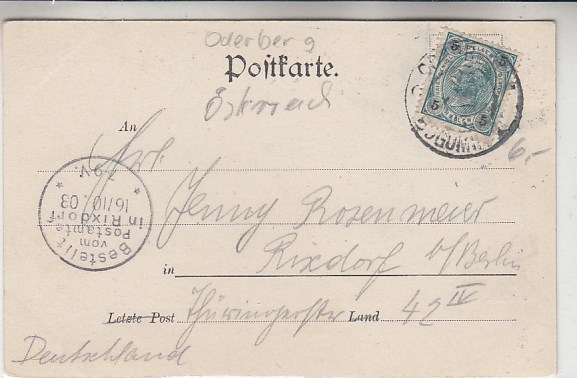 Oderberg
Postkarte.
Östreich
5 5
5 5
BOGUMIN
6,-
An
Frl.
Jenny Rosenmeier
in Rixdorf b/Berlin
Letzte Post Thüringerstr Land 42 IV
Deutschland
Bestellt
vom
Postamte
in Rixdorf
16/10 03
7-9V.